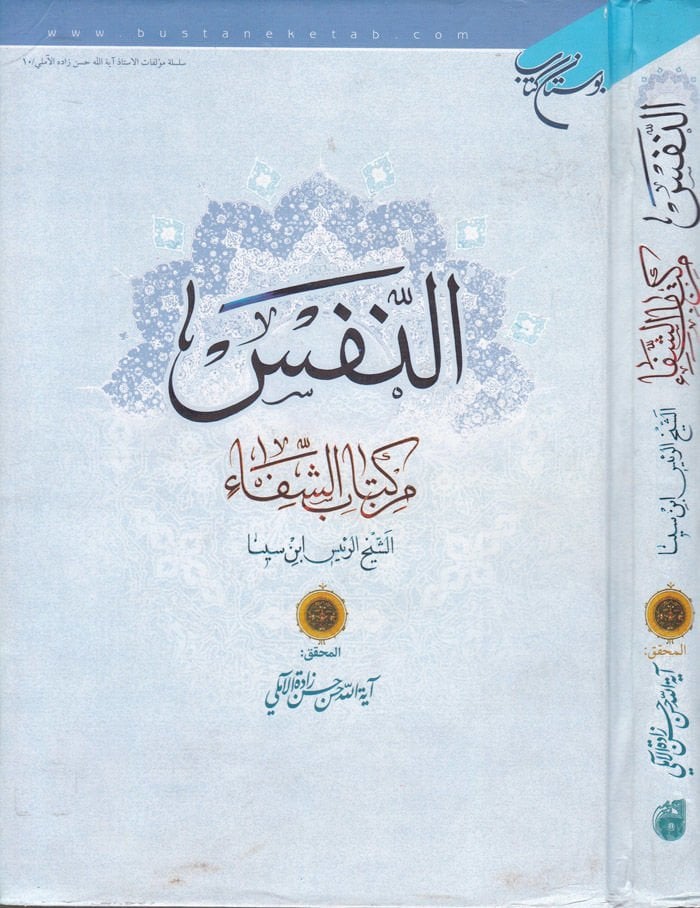 www.bustaneketab.com
سلسلة مؤلفات الاستاذ آية الله حسن زاده الآملي/١٠
بوستان کتاب
النَّفس
من كتاب الشِّفاء
الشَّيخ الرئيس ابن سينا
المحقق:
آية الله حسن حسن زادة الآملي
النَّفس
من كتاب الشِّفاء
الشَّيخ الرئيس ابن سينا
المحقق:
آية الله حسن حسن زادة الآملي